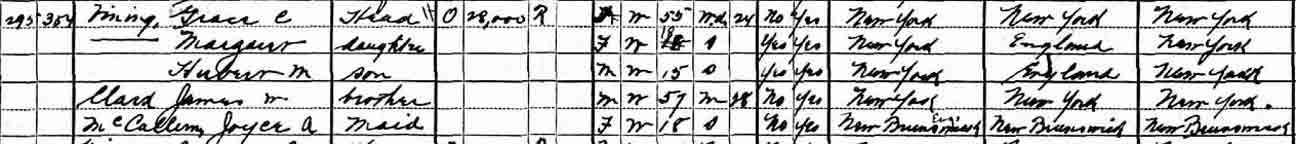 295 354 Vining, Grace C Head H O 28,000 R F W 55 Wd 24 No Yes New York New York New York
Margaret daughter F W 18 S Yes Yes New York England New York
Hubert M son M W 15 S Yes Yes New York England New York
Clark James W brother M W 57 M 28 No Yes New York New York New York
McCallum, Joyce A Maid F W 18 S No Yes New Brunswick New Brunswick New Brunswick